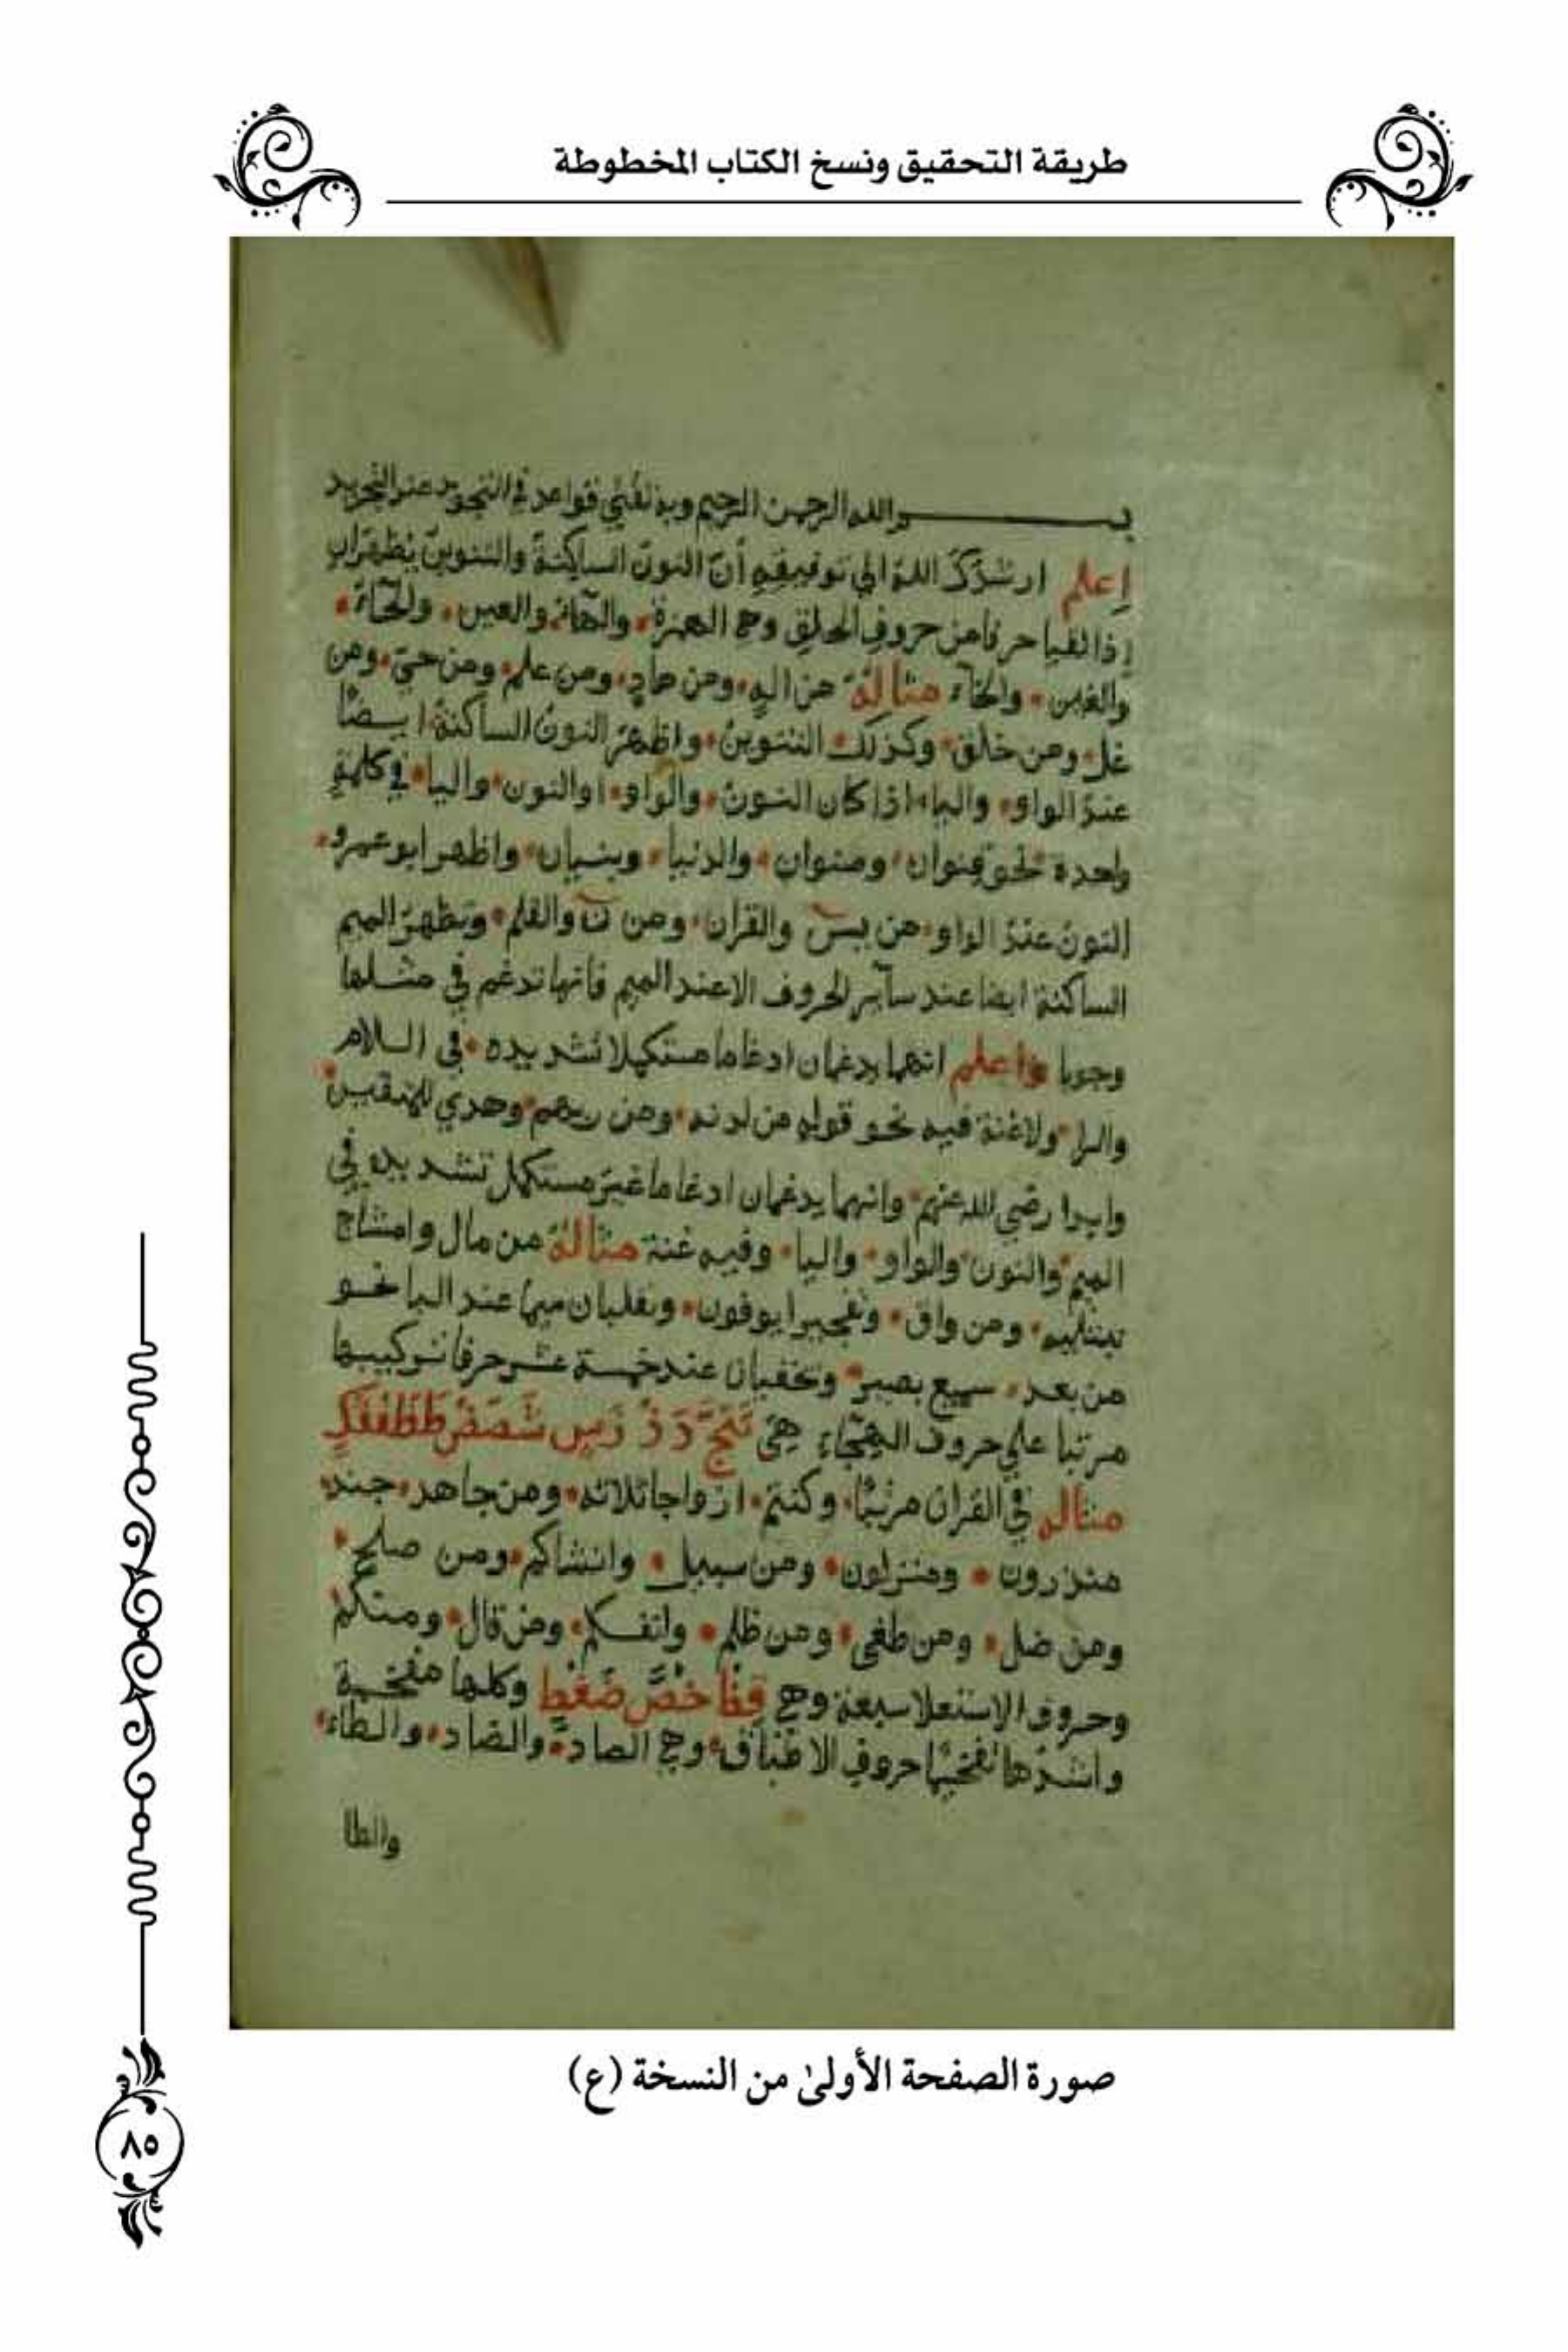 طريقة التحقيق ونسخ الكتاب المخطوطة
بسم الله الرحمن الرحيم وبه ثقتي قواعد في التجويد عند التجريد
إعلم ارشدك الله الي توفيقه أن النون الساكنة والتنوين يظهران
إذا لقيا حرفا من حروف الحلق وهي الهمزة والهاء والعين والحاء
والغين والخاء مثاله من اله ومن هاد ومن علم ومن حي ومن
غل ومن خلاق وكذلك التنوين واظهر النون الساكنة ايضا
عند الواو والياء اذا كان النون والواو او النون واليا في كلمة
واحدة نحو قنوان وصنوان والدنيا وبنيان واظهر ابو عمرو
النون عند الواو من يس والقران ومن ن والقلم وتظهر الميم
الساكنة ايضا عند سائر الحروف الا عند الميم فانها تدغم في مثلها
وجوبا واعلم انهما يدغمان ادغاما مستكملا تشديده في اللام
والرا ولاغنة فيه نحو قوله من لدنه ومن ربهم وهدي للمتقين
وابدا رضي الله عنهم وانهما يدغمان ادغاما غير مستكمل تشديده في
الميم والنون والواو واليا وفيه غنة مثاله من مال وامشاج
نبتليه ومن واق وتفجيرا يوفون وتقلبان ميما عند البا نحو
من بعد سميع بصير وتخفيان عند خمسة عشر حرفا تركيبها
مرتبا علي حروف الهجاء هي تثج دذ زس شصض طظفقك
مثاله في القران مرتبا وكنتم ازواجا ثلاثه ومن جاهد جند
منذرون ومنزلون ومن سبيل وانشاكم ومن صلح
ومن ضل ومن طغي ومن ظلم وانفسكم ومن قال ومنكم
وحروف الاستعلا سبعة وهي قظ خص ضغط وكلها مفخمة
واشدها تفخيما حروف الاطباق وهي الصاد والضاد والطاء
والظا
صورة الصفحة الأولى من النسخة (ع)
٨٥